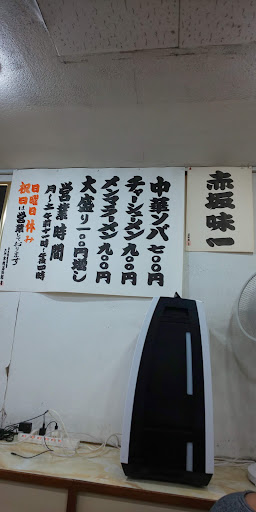 赤坂味一
中華ソバ 七〇〇円
チャーシューメン 九〇〇円
メンマラーメン 九〇〇円
大盛り 一〇〇円増し
営業時間
日曜日休み
祝日は営業しております